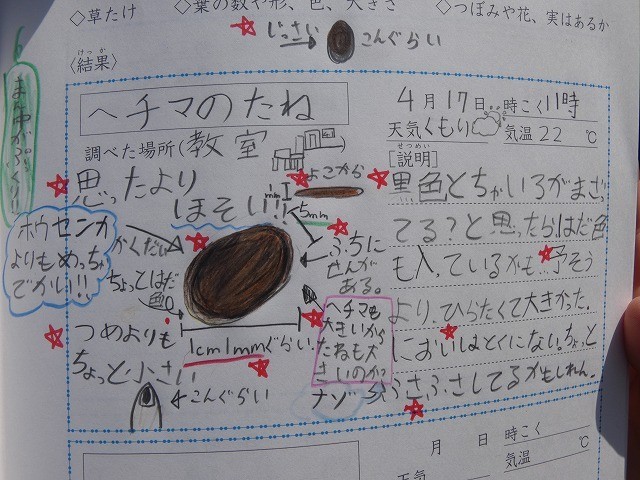 ◇草たけ ◇葉の数や形、色、大きさ ◇つぼみや花、実はあるか
じっさい こんぐらい
けっか
〈結果〉
ヘチマのたね
4月17日 時こく11時
天気くもり 気温22℃
調べた場所(教室
せつめい
[説明]
思ったより
ほそい!!
よこから
1mm
5mm
黒色とちゃいろがまざっ
てる?と思ったらはだ色
も入っているかも。予そう
より、ひらたくて大きかった。
においはとくにない。ちょっと
ふさふさしてるかもしれん。
まん中がぷっくり
ホウセンカ
よりもめっちゃ
でかい!!
ちょっとはだ
色。
ふちに
せんが
ある。
1cm1mmぐらい。
つめよりも
ちょっと小さい
こんぐらい
ヘチマも
大きいから
たねも大
きいのか?
ナゾ
月 日 時こく
天気 気温 ℃